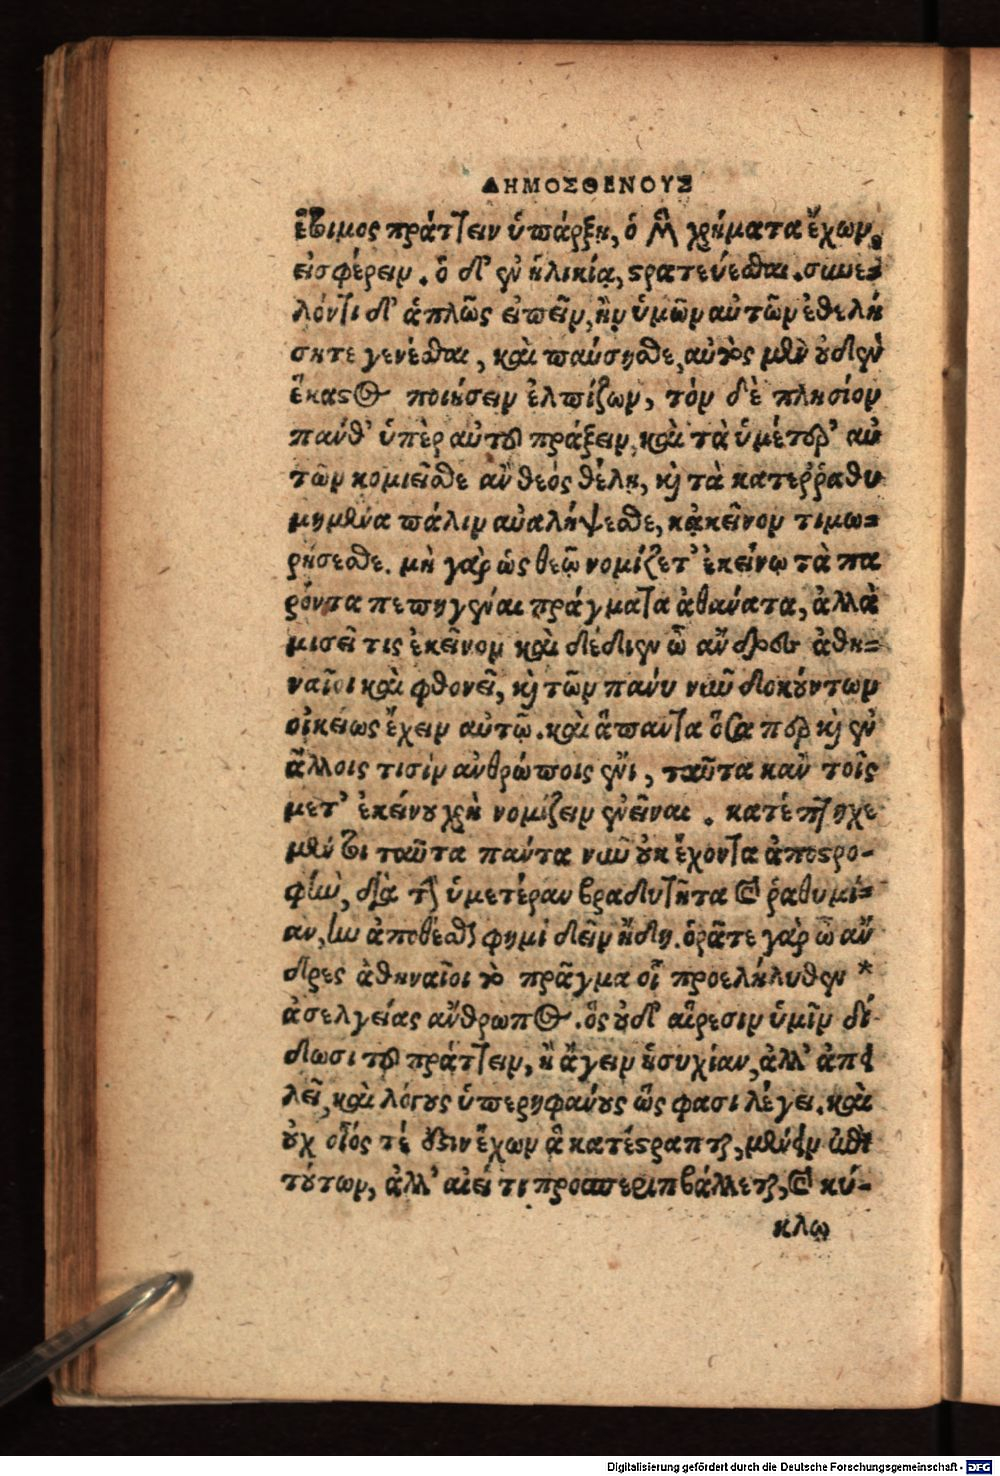 ΔΗΜΟΣΘΕΝΟΥΣ
ἕτοιμος πράττειν ὑπάρξῃ, ὁ μὲν χρήματα ἔχων,
εἰσφέρειν. ὁ δ' ἐν ἡλικίᾳ, στρατεύεσθαι. συνε=
λόντι δ' ἁπλῶς εἰπεῖν, ἢν ὑμῶν αὐτῶν ἐθελή
σητε γενέσθαι, καὶ παύσησθε, αὐτὸς μὲν οὐδὲν
ἕκαστος ποιήσειν ἐλπίζων, τὸν δὲ πλησίον
πάνθ' ὑπὲρ αὐτοῦ πράξειν, καὶ τὰ ὑμέτερ' αὐ
τῶν κομιεῖσθε ἂν θεός θέλῃ, καὶ τὰ κατερῥαθυ
μημένα πάλιν ἀναλήψεσθε, κἀκεῖνον τιμω=
ρήσεσθε. μὴ γὰρ ὡς θεῷ νομίζετ' ἐκείνῳ τὰ πα
ρόντα πεπηγέναι πράγματα ἀθάνατα, ἀλλὰ
μισεῖ τις ἐκεῖνον καὶ δέδιεν ὦ ἄνδρες ἀθη=
ναῖοι καὶ φθονεῖ, καὶ τῶν πάνυ νῦν δοκούντων
οἰκείως ἔχειν αὐτῷ. καὶ ἅπαντα ὅσα περ καὶ ἐν
ἄλλοις τισὶν ἀνθρώποις ἔνι, ταῦτα κἀν τοῖς
μετ' ἐκείνου χρὴ νομίζειν ἐνεῖναι. κατέπτηχε
μέντοι ταῦτα πάντα νῦν οὐκ ἔχοντα ἀποστρο-
φὴν, διὰ τὴν ὑμετέραν βραδυτῆτα καὶ ῥαθυμί=
αν, ἣν ἀποθέσθαι φημὶ δεῖν ἤδη. ὁρᾶτε γὰρ ὦ ἄν
δρες ἀθηναῖοι τὸ πρᾶγμα οἷ προελήλυθεν *
ἀσελγείας ἄνθρωπος. ὃς οὐδ' αἵρεσιν ὑμῖν δί
δωσι τοῦ πράττειν, ἢ ἄγειν ἡσυχίαν, ἀλλ' ἀπει
λεῖ, καὶ λόγους ὑπερηφάνους ὥς φασι λέγει. καὶ
οὐχ οἷός τέ ἐστιν ἔχων ἃ κατέστραπται, μένειν ἐπὶ
τούτων, ἀλλ' αἰεί τι προσπεριβάλλεται, καὶ κύ-
κλῳ
Digitalisierung gefördert durch die Deutsche Forschungsgemeinschaft - DFG